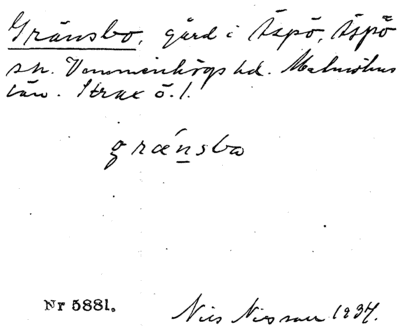 Gränsbo, gård i Äspö, Äspö
sn. Vemmenhögs hd. Malmöhus
län. Strax ö. l.
grænsbo
Nr 5881.
Nils Nilsson 1934.